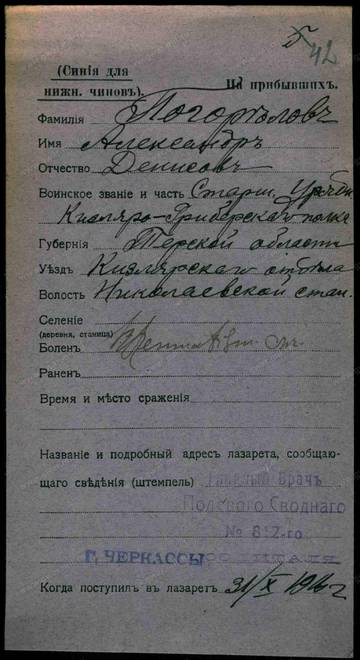 42
(Синія для
нижн. чиновъ).
На прибывшихъ.
Фамилія Погорѣловъ
Имя Александръ
Отчество Денисовъ
Воинское званіе и часть Старш. Уряд.
Кизляро-Гребенскаго полка
Губернія Терской области
Уѣздъ Кизлярскаго отдѣла
Волость Николаевской стан.
Селеніе
(деревня, станица)
Боленъ
Раненъ
Время и мѣсто сраженія
Названіе и подробный адресъ лазарета, сообщаю-
щаго свѣдѣнія (штемпель) Главный Врачъ
Полевого Своднаго
№ 812-го
Г. ЧЕРКАССЫ ГОСПИТАЛЯ
Когда поступилъ въ лазаретъ 31/X 1916 г